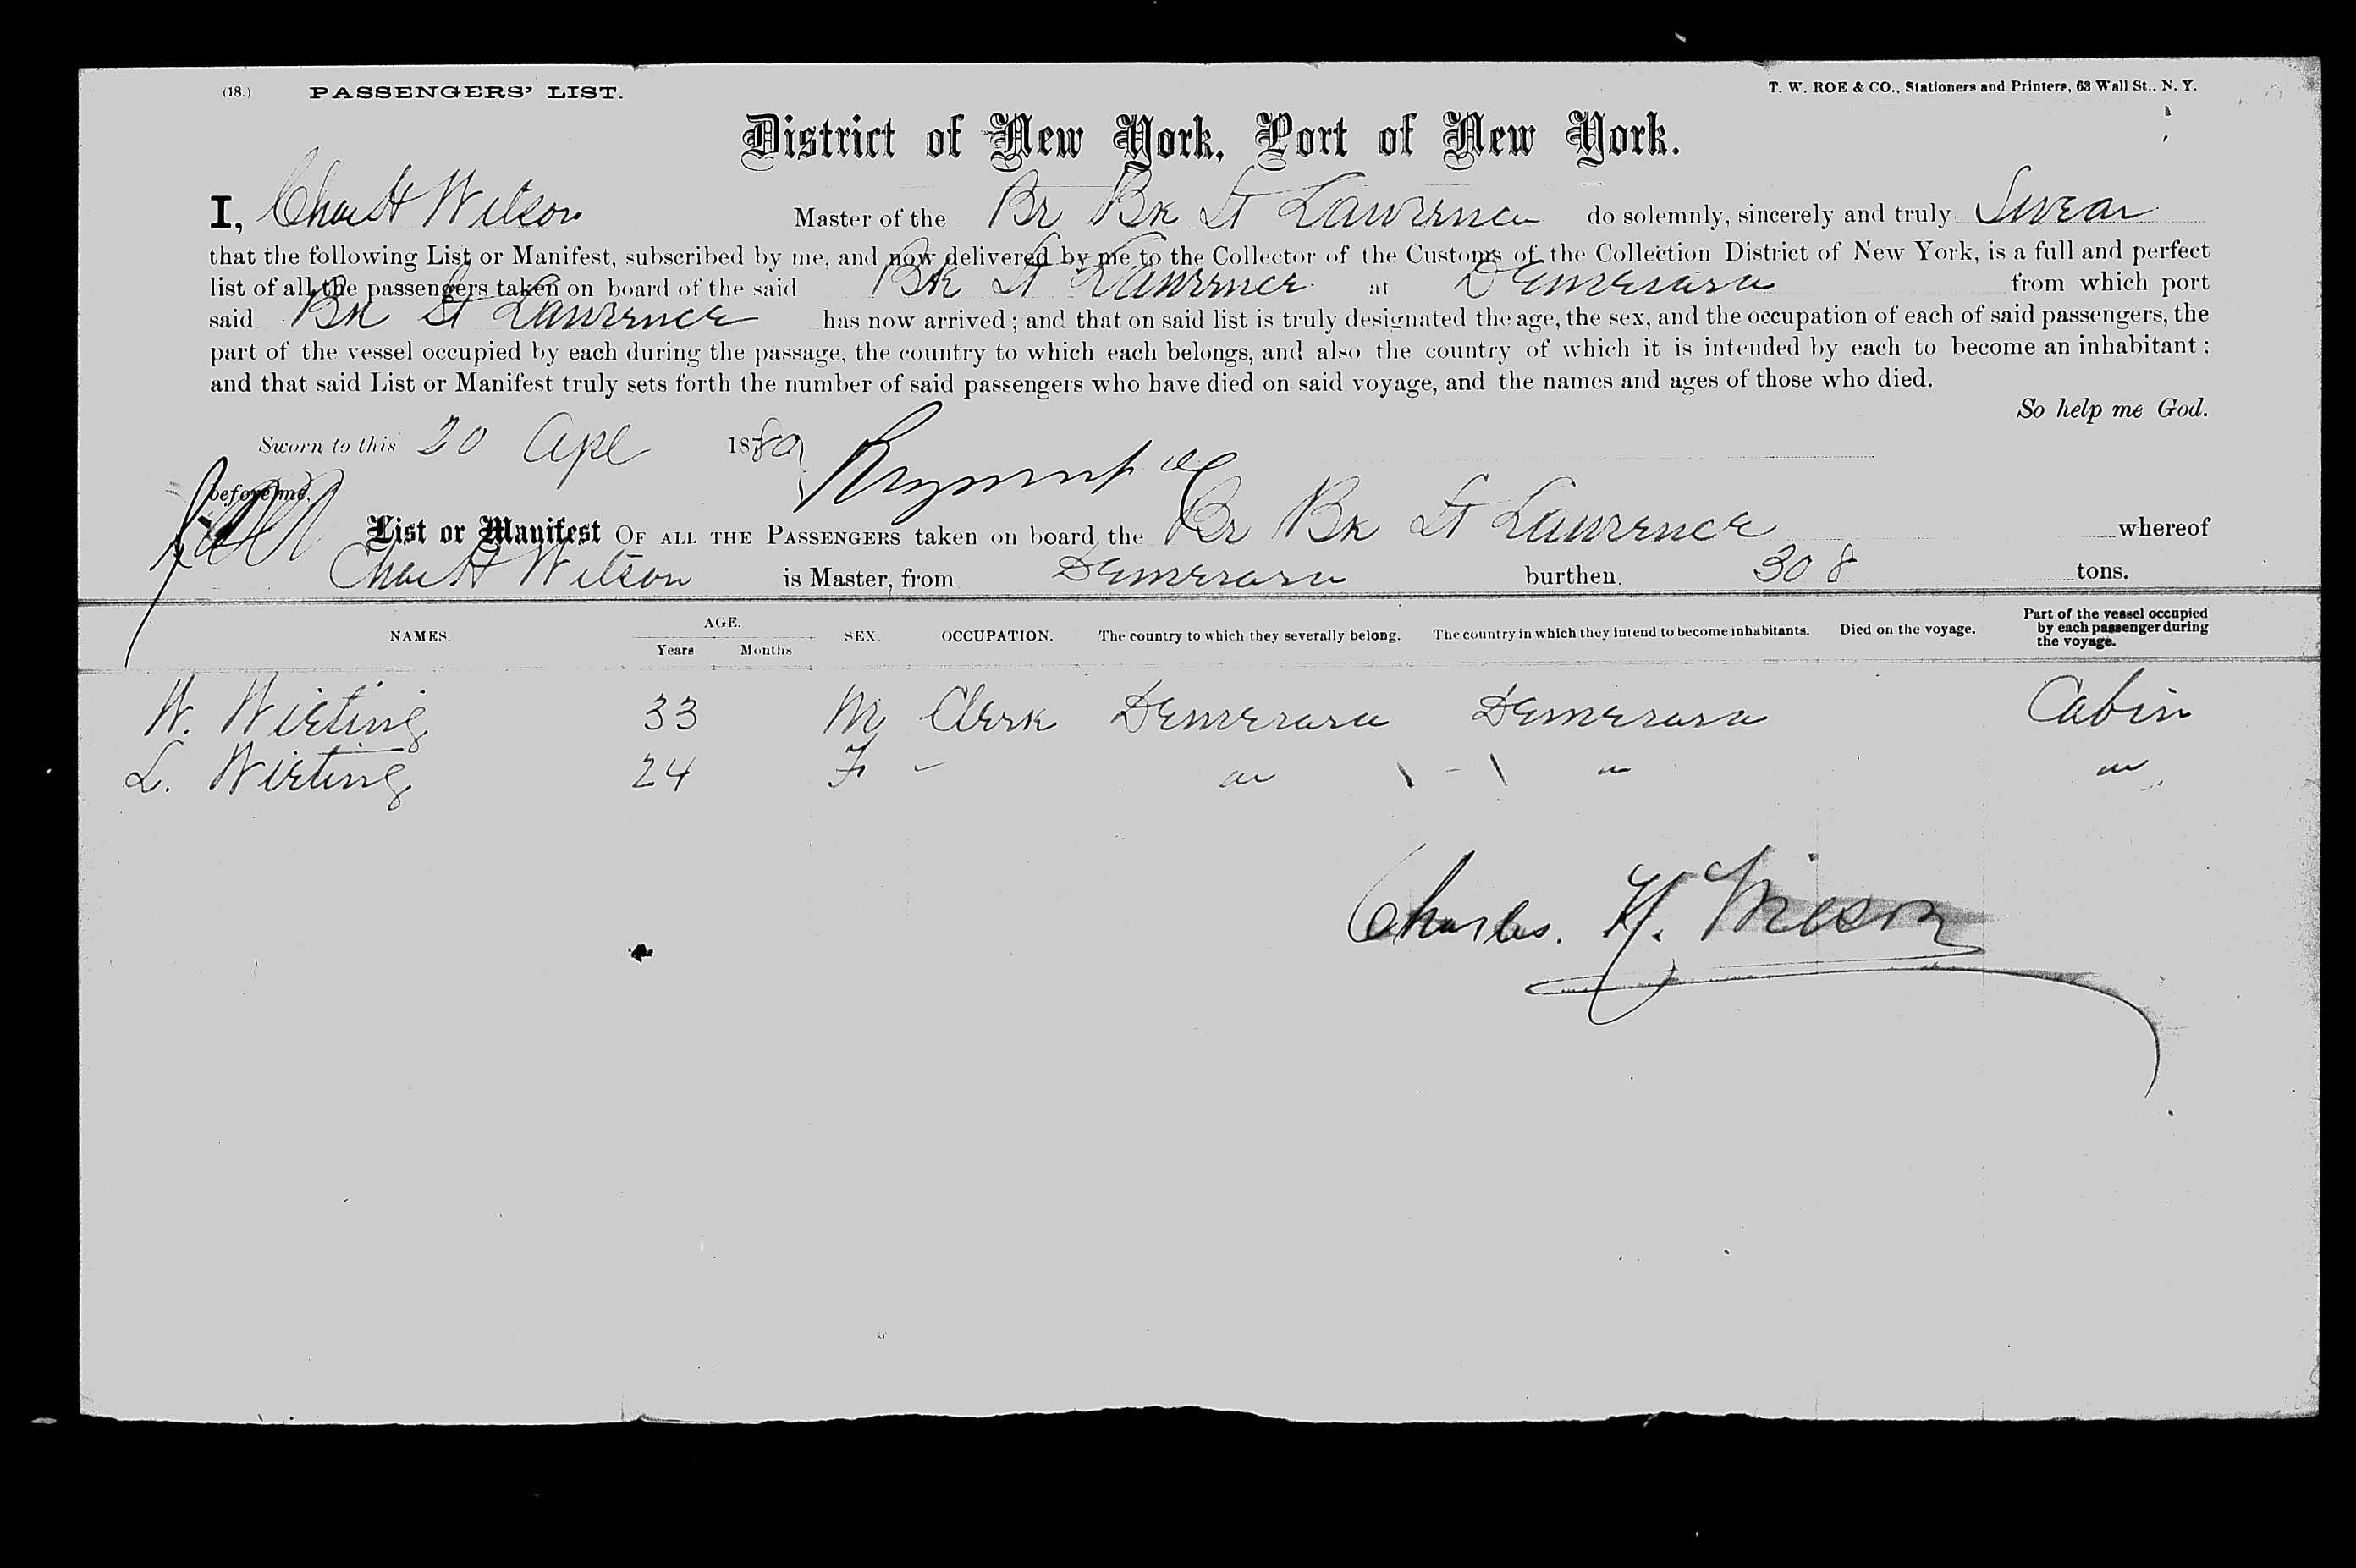 (18.) PASSENGERS' LIST. T. W. ROE & CO., Stationers and Printers, 63 Wall St., N. Y.
District of New York, Port of New York.
I, Chas H Wilson Master of the Br Bk St Lawrence do solemnly, sincerely and truly Swear
that the following List or Manifest, subscribed by me, and now delivered by me to the Collector of the Customs of the Collection District of New York, is a full and perfect
list of all the passengers taken on board of the said Bk St Lawrence at Demerara from which port
said Bk St Lawrence has now arrived; and that on said list is truly designated the age, the sex, and the occupation of each of said passengers, the
part of the vessel occupied by each during the passage, the country to which each belongs, and also the country of which it is intended by each to become an inhabitant;
and that said List or Manifest truly sets forth the number of said passengers who have died on said voyage, and the names and ages of those who died.
So help me God.
Sworn to this 20 Apl 1880
before me,
List or Manifest OF ALL THE PASSENGERS taken on board the Br Bk St Lawrence whereof
Chas H Wilson is Master, from Demerara burthen. 308 tons.
NAMES. AGE. Years Months SEX. OCCUPATION. The country to which they severally belong. The country in which they intend to become inhabitants. Died on the voyage. Part of the vessel occupied by each passenger during the voyage.
W. Wieting 33 M Clerk Demerara Demerara Cabin
L. Wieting 24 F - " " "
Charles. H. Wilson